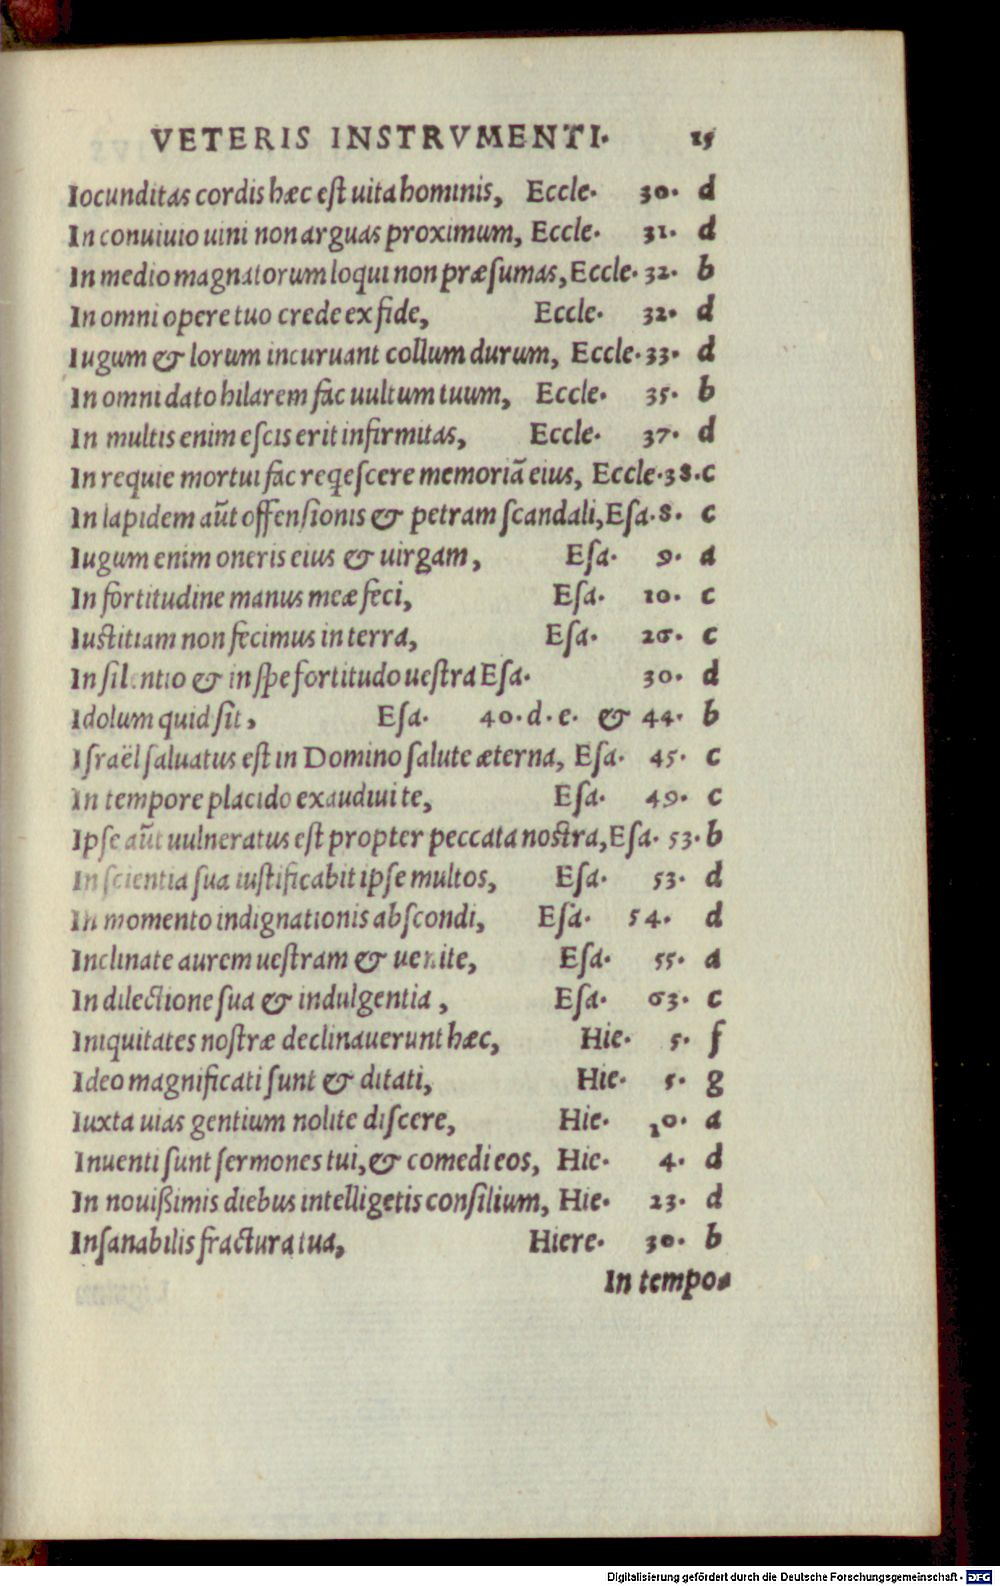 VETERIS INSTRVMENTI. 15
Iocunditas cordis hæc est uita hominis, Eccle. 30. d
In conuiuio uini non arguas proximum, Eccle. 31. d
In medio magnatorum loqui non præsumas, Eccle. 32. b
In omni opere tuo crede ex fide, Eccle. 32. d
Iugum & lorum incuruant collum durum, Eccle. 33. d
In omni dato hilarem fac uultum tuum, Eccle. 35. b
In multis enim escis erit infirmitas, Eccle. 37. d
In requie mortui fac reqescere memoriã eius, Eccle. 38. c
In lapidem aũt offensionis & petram scandali, Esa. 8. c
Iugum enim oneris eius & uirgam, Esa. 9. a
In fortitudine manus meæ feci, Esa. 10. c
Iustitiam non fecimus in terra, Esa. 26. c
In silentio & in spe fortitudo uestra Esa. 30. d
Idolum quid sit, Esa. 40. d. e. & 44. b
Israël saluatus est in Domino salute æterna, Esa. 45. c
In tempore placido exaudiui te, Esa. 49. c
Ipse aũt uulneratus est propter peccata nostra, Esa. 53. b
In scientia sua iustificabit ipse multos, Esa. 53. d
In momento indignationis abscondi, Esa. 54. d
Inclinate aurem uestram & uenite, Esa. 55. a
In dilectione sua & indulgentia, Esa. 63. c
Iniquitates nostræ declinauerunt hæc, Hie. 5. f
Ideo magnificati sunt & ditati, Hie. 5. g
Iuxta uias gentium nolite discere, Hie. 10. a
Inuenti sunt sermones tui, & comedi eos, Hie. 4. d
In nouißimis diebus intelligetis consilium, Hie. 23. d
Insanabilis fractura tua, Hiere. 30. b
In tempo-
Digitalisierung gefördert durch die Deutsche Forschungsgemeinschaft - DFG